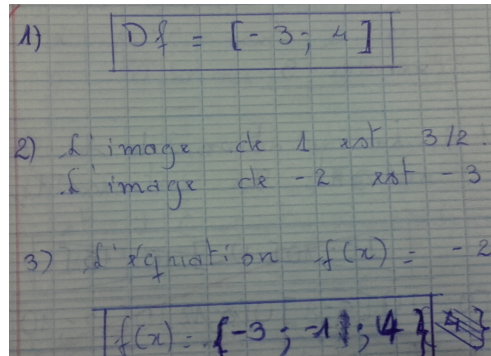 1) Df = [-3; 4]
2) L'image de 1 est 3/2.
L'image de -2 est -3
3) L'équation f(x) = -2
f(x) = {-3; -1; 4}